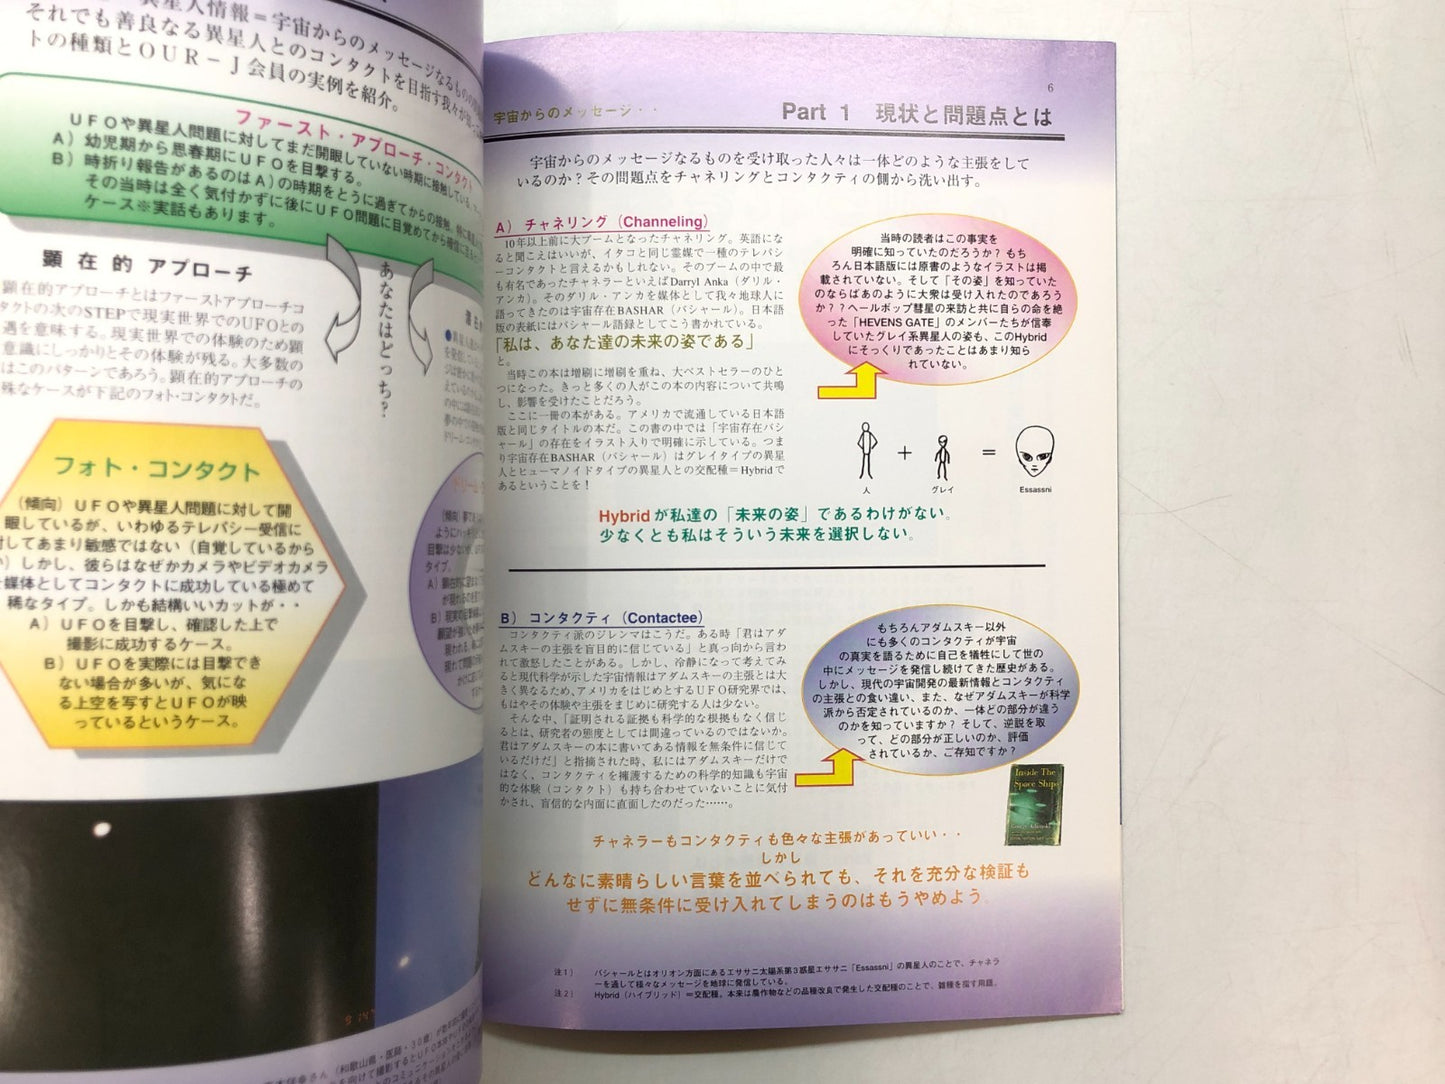 異星人情報＝宇宙からのメッセージなるものの
それでも善良なる異星人とのコンタクトを目指す我々が
トの種類とＯＵＲ－Ｊ会員の実例を紹介。
ファースト・アプローチ・コンタクト
ＵＦＯや異星人問題に対してまだ開眼していない時期に接触している
A）幼児期から思春期にＵＦＯを目撃する。
B）時折り報告があるのはA）の時期をとうに過ぎてからの接触、
その当時は全く気付かずに後にＵＦＯ問題に目覚めてから確信に
ケース※実話もあります。
顕在的アプローチ
顕在的アプローチとはファーストアプローチコ
タクトの次のSTEPで現実世界でのUFOとの
遇を意味する。現実世界での体験のため顕
意識にしっかりとその体験が残る。大多数の
はこのパターンであろう。顕在的アプローチの
殊なケースが下記のフォト・コンタクトだ。
あなたはどっち？
フォト・コンタクト
（傾向）ＵＦＯや異星人問題に対して開
眼しているが、いわゆるテレパシー受信に
対してあまり敏感ではない（自覚しているから
）しかし、彼らはなぜかカメラやビデオカメラ
媒体としてコンタクトに成功している極めて
稀なタイプ。しかも結構いいカットが・・
A）ＵＦＯを目撃し、確認した上で
撮影に成功するケース。
B）ＵＦＯを実際には目撃でき
ない場合が多いが、気にな
る上空を写すとＵＦＯが映
っているというケース。
6
宇宙からのメッセージ・・
Part 1　現状と問題点とは
宇宙からのメッセージなるものを受け取った人々は一体どのような主張をして
いるのか？その問題点をチャネリングとコンタクティの側から洗い出す。
A）チャネリング（Channeling）
10年以上前に大ブームとなったチャネリング。英語にな
ると聞こえはいいが、イタコと同じ霊媒で一種のテレパシ
ーコンタクトと言えるかもしれない。そのブームの中で最
も有名であったチャネラーといえばDarryl Anka（ダリル・
アンカ）。そのダリル・アンカを媒体として我々地球人に
語ってきたのは宇宙存在BASHAR（バシャール）。日本語
版の表紙にはバシャール語録としてこう書かれている。
「私は、あなた達の未来の姿である」
と。
当時この本は増刷に増刷を重ね、大ベストセラーのひと
つになった。きっと多くの人がこの本の内容について共鳴
し、影響を受けたことだろう。
ここに一冊の本がある。アメリカで流通している日本語
版と同じタイトルの本だ。この書の中では「宇宙存在バシ
ャール」の存在をイラスト入りで明確に示している。つま
り宇宙存在BASHAR（バシャール）はグレイタイプの異星
人とヒューマノイドタイプの異星人との交配種＝Hybridで
あるということを！
当時の読者はこの事実を
明確に知っていたのだろうか？ もち
ろん日本語版には原書のようなイラストは掲
載されていない。そして「その姿」を知っていた
のならばあのように大衆は受け入れたのであろう
か？？ヘールボップ彗星の来訪と共に自らの命を絶
った「HEVENS GATE」のメンバーたちが信奉
していたグレイ系異星人の姿も、このHybrid
にそっくりであったことはあまり知ら
れていない。
＋
＝
人
グレイ
Essassni
Hybridが私達の「未来の姿」であるわけがない。
少なくとも私はそういう未来を選択しない。
B）コンタクティ（Contactee）
コンタクティ派のジレンマはこうだ。ある時「君はアダ
ムスキーの主張を盲目的に信じている」と真っ向から言わ
れて激怒したことがある。しかし、冷静になって考えてみ
ると現代科学が示した宇宙情報はアダムスキーの主張とは大
きく異なるため、アメリカをはじめとするＵＦＯ研究界では、
もはやその体験や主張をまじめに研究する人は少ない。
そんな中、「証明される証拠も科学的な根拠もなく信じ
るとは、研究者の態度としては間違っているのではないか。
君はアダムスキーの本に書いてある情報を無条件に信じて
いるだけだ」と指摘された時、私にはアダムスキーだけで
はなく、コンタクティを擁護するための科学的知識も宇宙
的な体験（コンタクト）も持ち合わせていないことに気付
かされ、盲信的な内面に直面したのだった……。
もちろんアダムスキー以外
にも多くのコンタクティが宇宙
の真実を語るために自己を犠牲にして世の
中にメッセージを発信し続けてきた歴史がある。
しかし、現代の宇宙開発の最新情報とコンタクティ
の主張との食い違い、また、なぜアダムスキーが科学
派から否定されているのか、一体どの部分が違う
のかを知っていますか？ そして、逆説を取
って、どの部分が正しいのか、評価
されているか、ご存知ですか？
Inside The
Space Ships
チャネラーもコンタクティも色々な主張があっていい・・
しかし
どんなに素晴らしい言葉を並べられても、それを充分な検証も
せずに無条件に受け入れてしまうのはもうやめよう。
注１）　バシャールとはオリオン方面にあるエササニ太陽系第３惑星エササニ「Essassni」の異星人のことで、チャネラ
ーを通して様々なメッセージを地球に発信している。
注２）　Hybrid（ハイブリッド）＝交配種。本来は農作物などの品種改良で発生した交配種のことで、雑種を指す用語。